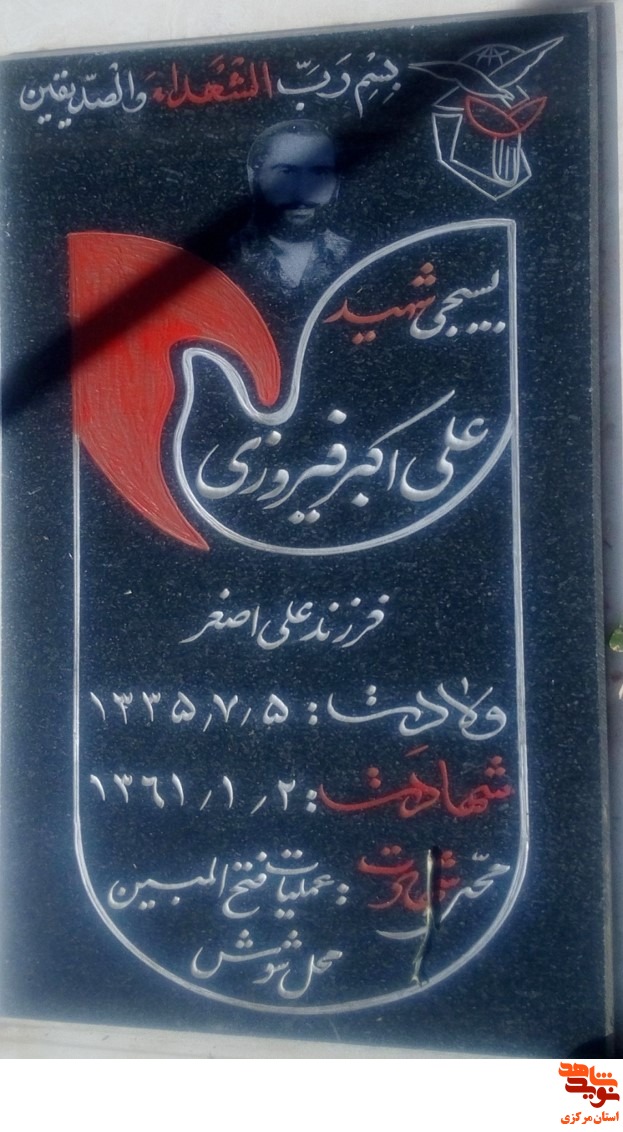 بِسْمِ رَبِّ الشُّهَداءِ وَالصِّدیقین
بسیجی شهید
علی اکبر فیروزی
فرزند علی اصغر
ولادت: ۱۳۳۵/۷/۵
شهادت: ۱۳۶۱/۱/۲
محل شهادت: عملیات فتح المبین
محل شوش
نوید شاهد
استان مرکزی